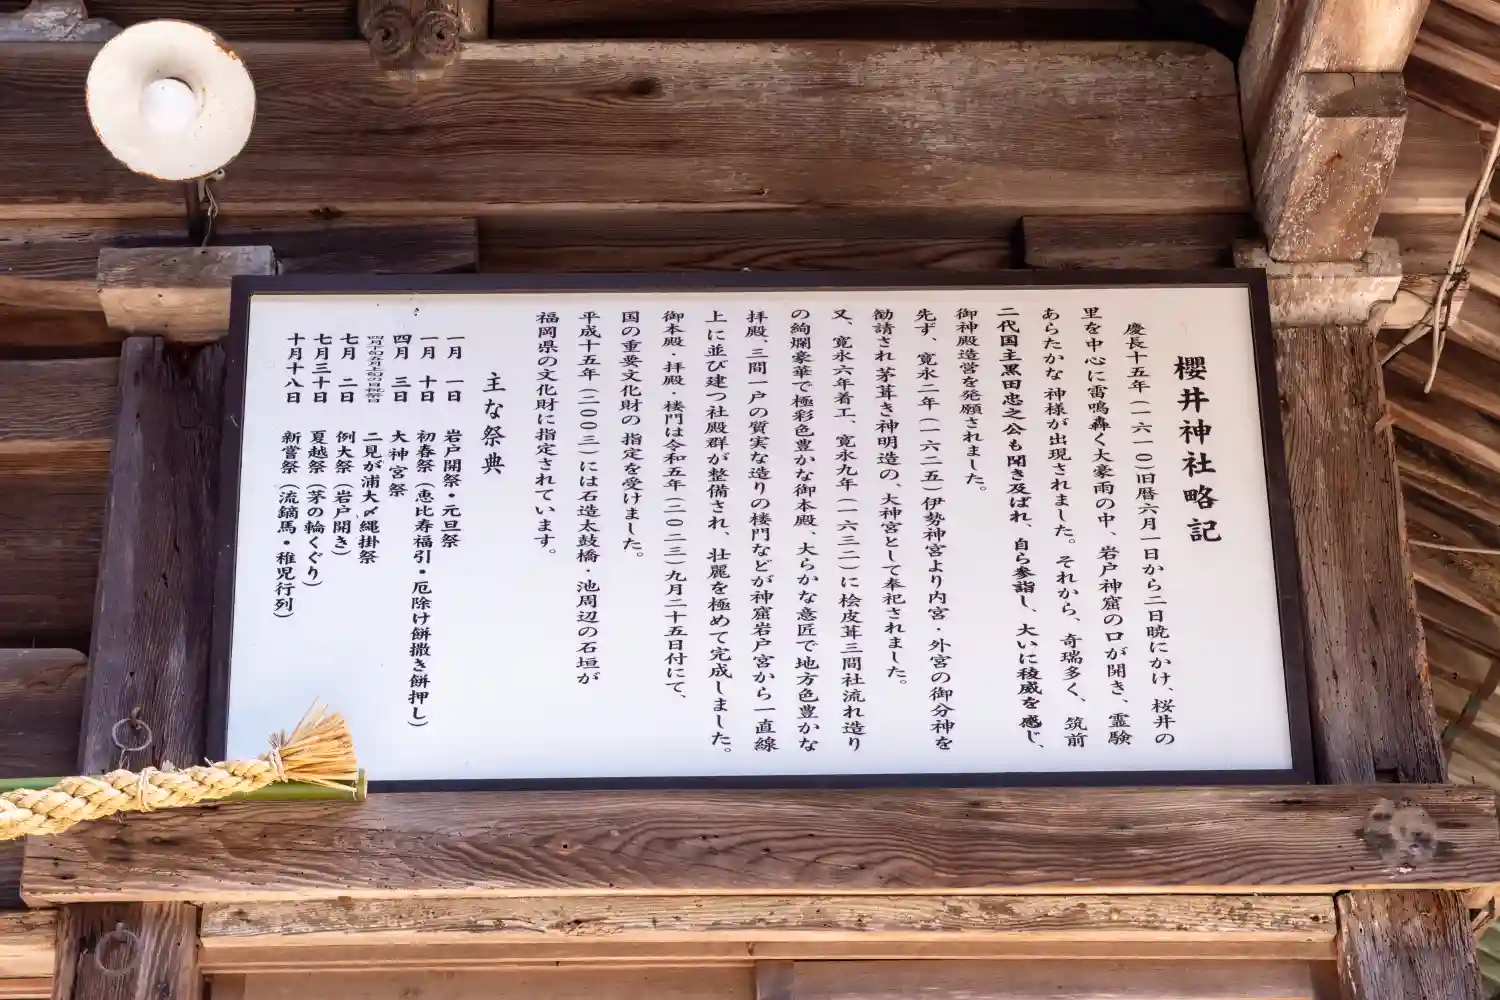 櫻井神社略記
慶長十五年（一六一〇）旧暦六月一日から二日暁にかけ、桜井の
里を中心に雷鳴轟く大豪雨の中、岩戸神窟の口が開き、霊験
あらたかな神様が出現されました。それから、奇瑞多く、筑前
二代国主黒田忠之公も聞き及ばれ、自ら参詣し、大いに稜威を感じ、
御神殿造営を発願されました。
先ず、寛永二年（一六二五）伊勢神宮より内宮・外宮の御分神を
勧請され茅葺き神明造の、大神宮として奉祀されました。
又、寛永六年着工、寛永九年（一六三二）に桧皮葺三間社流れ造り
の絢爛豪華で極彩色豊かな御本殿、大らかな意匠で地方色豊かな
拝殿、三間一戸の質実な造りの楼門などが神窟岩戸宮から一直線
上に並び建つ社殿群が整備され、壮麗を極めて完成しました。
御本殿・拝殿・楼門は令和五年（二〇二三）九月二十五日付にて、
国の重要文化財の指定を受けました。
平成十五年（二〇〇三）には石造太鼓橋・池周辺の石垣が
福岡県の文化財に指定されています。
主な祭典
一月　一日　岩戸開祭・元旦祭
一月　十日　初春祭（恵比寿福引・厄除け餅撒き餅押し）
四月　三日　大神宮祭
四月下旬五月上旬の日祝祭日　二見が浦大〆縄掛祭
七月　二日　例大祭（岩戸開き）
七月三十日　夏越祭（茅の輪くぐり）
十月十八日　新嘗祭（流鏑馬・稚児行列）